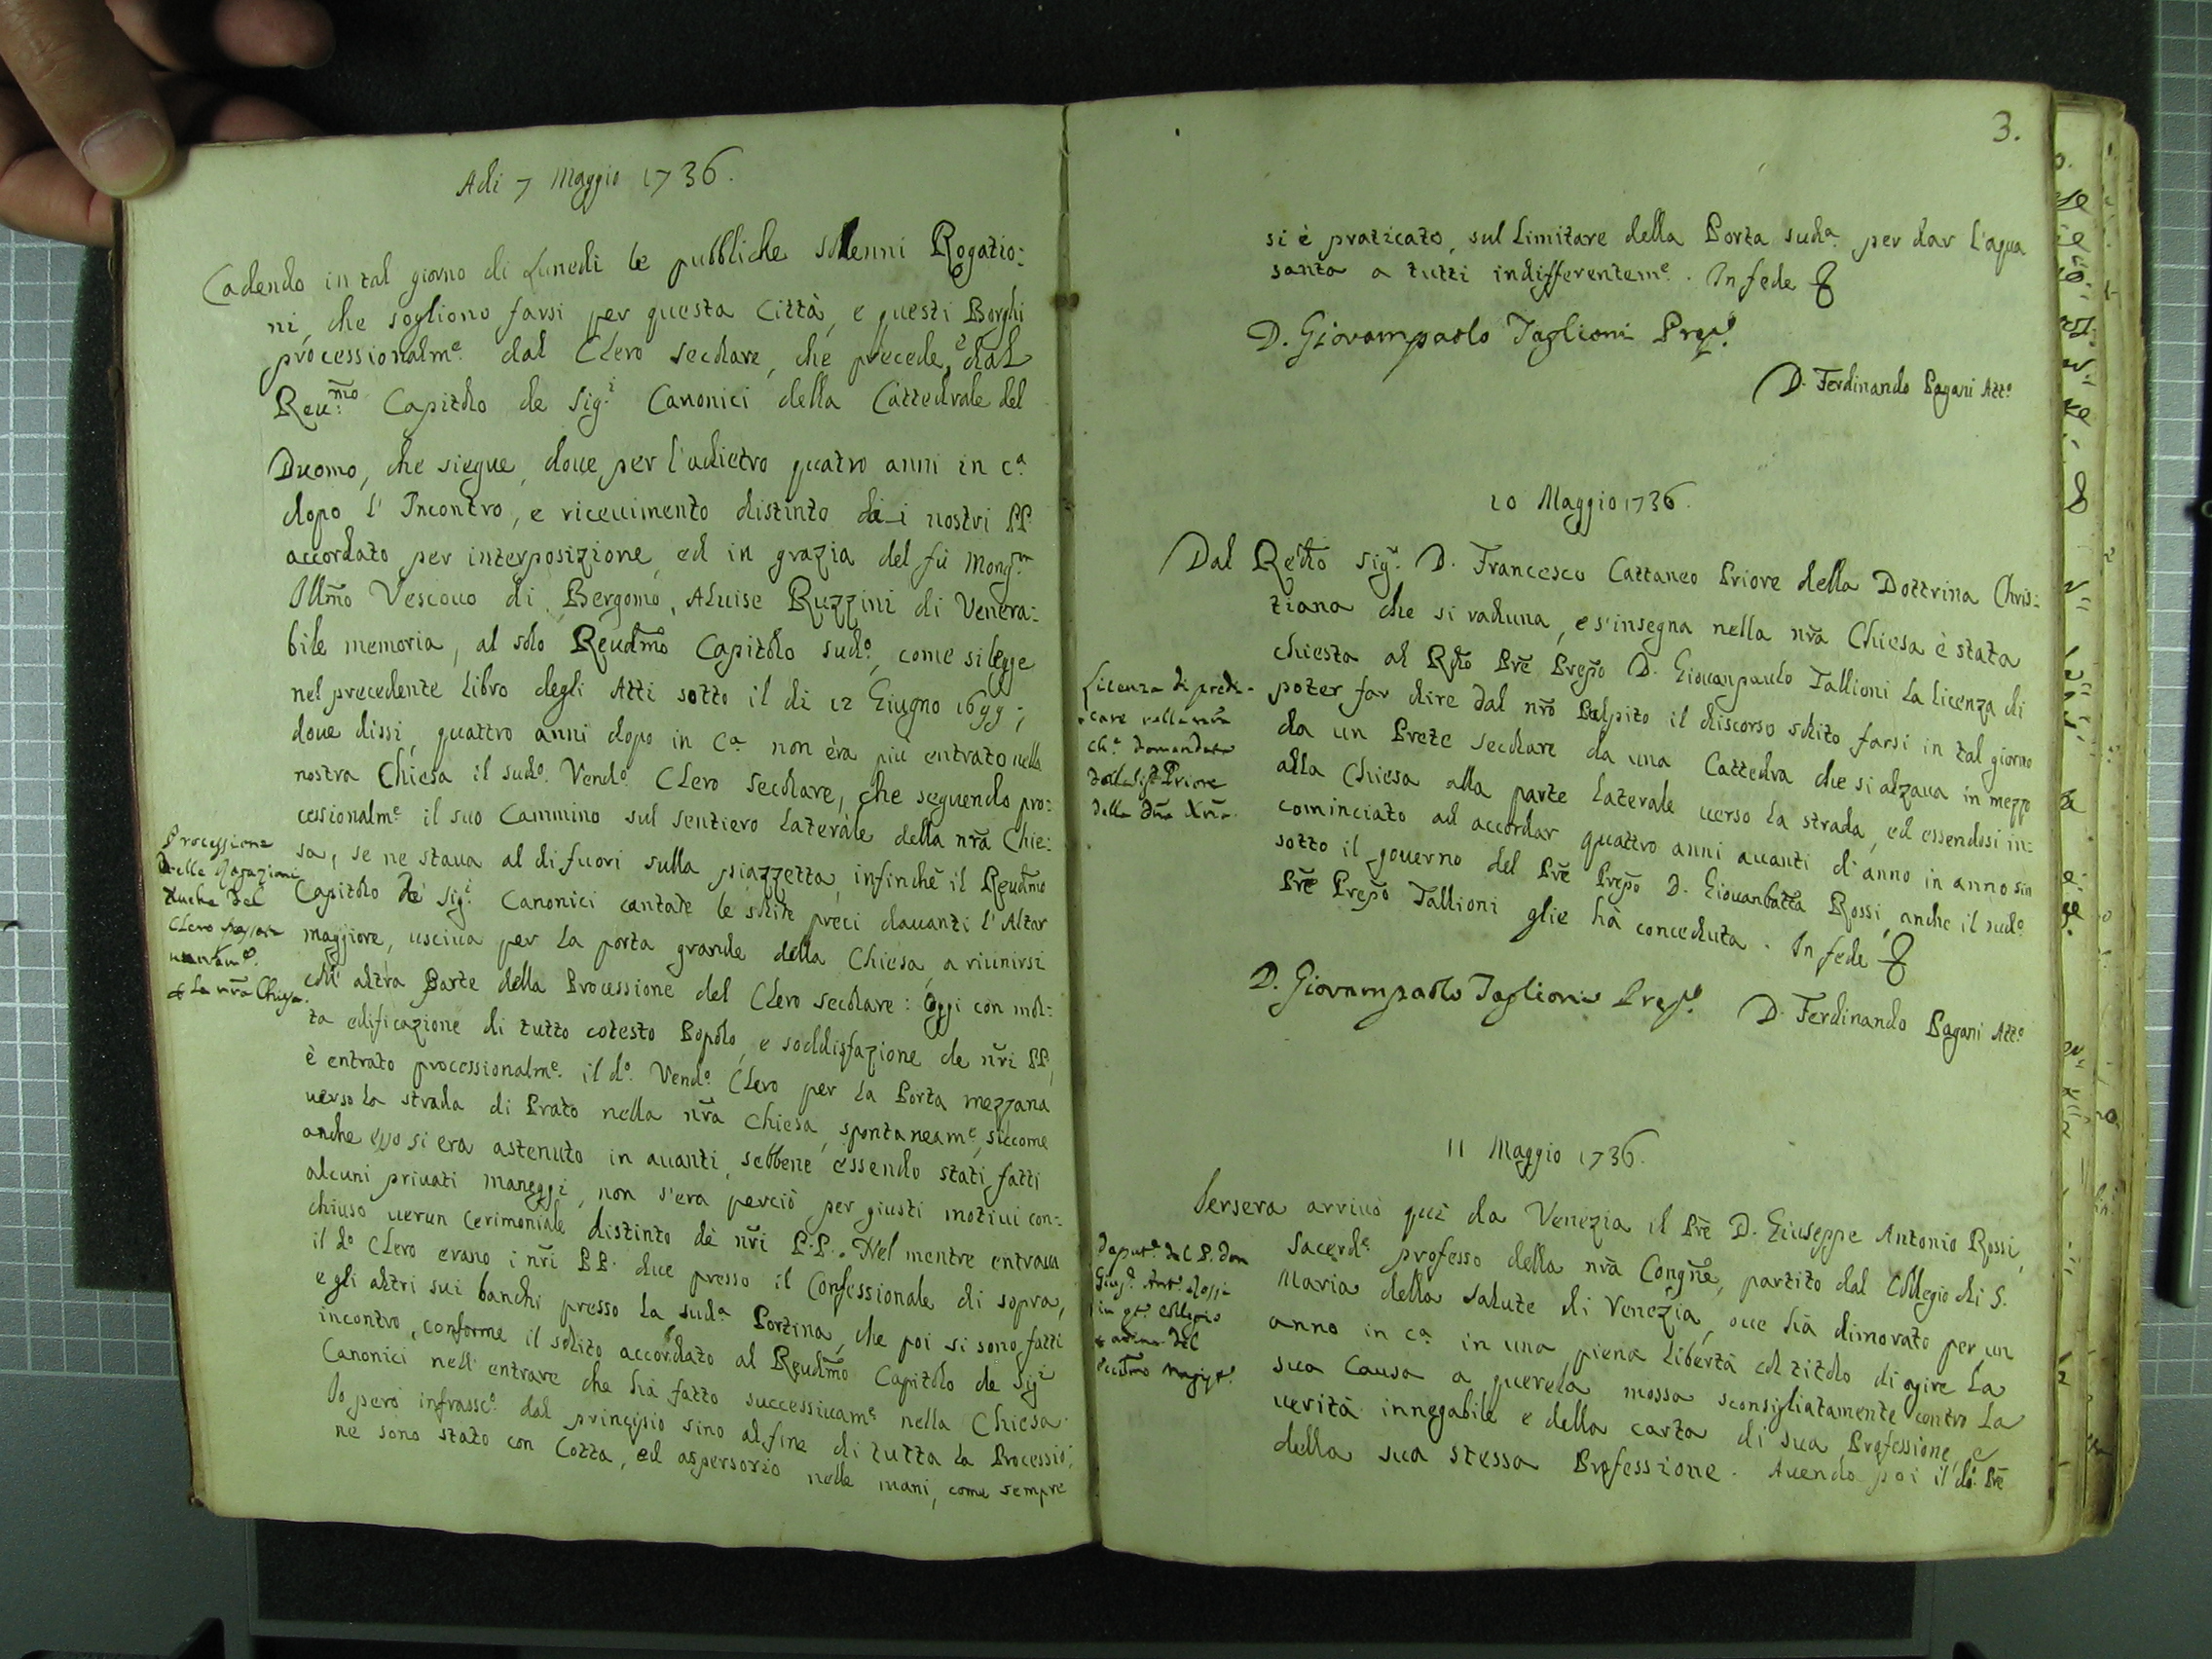 Adi 7 Maggio 1736.
Cadendo in tal giorno di Lunedi le pubbliche solenni Rogatio:
ni, che sogliono farsi per questa Città, e questi Borghi
processionalm.e dal Clero secolare, che precede, e dal
Reu.mo Capitolo de Sig.i Canonici della Cattedrale del
Duomo, che siegue, doue per l'adietro quatro anni in c.a
dopo l'Incontro, e riceuimento distinto da i nostri PP.
accordato per interposizione, ed in grazia del fù Mong.r
Illmo Vescouo di Bergomo, Aluise Ruzzini di Venera:
bile memoria, al solo Reudmo Capitolo sud.o, come si legge
nel precedente Libro degli Atti sotto il di 12 Giugno 1699;
doue dissi, quattro anni dopo in c.a non èra più entrato nella
nostra Chiesa il sud.o Vend.o Clero secolare, che seguendo pro:
cessionalm.e il suo Cammino sul sentiero Laterale della nra Chie:
sa, se ne staua al di fuori sulla piazzetta, infinchè il Reudmo
Capitolo de Sig.i Canonici cantate le solite preci dauanti l'Altar
maggiore, usciua per la porta grande della Chiesa, a riunirsi
coll'altra Parte della Processione del Clero secolare: Oggi con mol:
ta edificazione di tutto cotesto Popolo, e soddisfazione de nri PP.
è entrato processionalm.e il d.o Vend.o Clero per la Porta mezzana
uerso la strada di Prato nella nra Chiesa, spontaneam.e, siccome
anche esso si era astenuto in auanti, sebbene essendo stati fatti
alcuni priuati maneggi, non s'era perciò per giusti motiui con:
chiuso uerun Cerimoniale distinto dè nri P.P. Nel mentre entraua
il d.o Clero erano i nri PP. due presso il Confessionale di sopra,
e gli altri sui banchi presso la sud.a Portina, che poi si sono fatti
incontro, conforme il solito accordato al Reudmo Capitolo de Sig.i
Canonici nell'entrare che hà fatto successiuam.e nella Chiesa.
Io però infrassc.o dal principio sino al fine di tutta la Processio:
ne sono stato con Cotta, ed aspersorio nelle mani, come sempre
Processione
delle Rogazioni
Anche del
Clero
La nra Chiesa.
3.
si è praticato, sul Limitare della Porta sud.a per dar l'aqua
santa a tutti indifferentem.e. In fede
D. Giovampaolo Taglioni Prep.o
D. Ferdinando Pagani Att.o
10 Maggio 1736.
Dal Redto Sig.r D. Francesco Cattaneo Priore della Dottrina Chris:
tiana che si raduna, e s'insegna nella nra Chiesa è stata
chiesta al Rdo Pre Prepo D. Giouanpaulo Tallioni la licenza di
poter far dire dal nro Pulpito il discorso solito farsi in tal giorno
da un Prete secolare da una Cattedra che si alzaua in mezzo
alla Chiesa alla parte laterale uerso la strada, ed essendosi in:
cominciato ad accordar quattro anni auanti d'anno in anno sin
sotto il gouerno del Pre Prepo D. Giouanbatta Rossi, anche il sud.o
Pre Prepo Tallioni glie hà conceduta. In fede
D. Giovampaolo Taglioni Prep.o
D. Ferdinando Pagani Att.o
Licenza di predi-
care nella nra
Ch.a domandata
dal Sig.r Priore
della Dna Xna.
11 Maggio 1736.
Iersera arriuò quì da Venezia il Pre D. Giuseppe Antonio Rossi,
Sacerd.e professo della nra Congne, partito dal Collegio di S.
Maria della Salute di Venezia, oue hà dimorato per un
anno in c.a in una piena libertà col titolo di agire la
sua Causa a querela mossa sconsigliatamente contro la
uerità innegabile e della carta di sua Professione, e
della sua stessa Professione. Auendo poi il do. Pre
Deput.e del P. Don
Gius.e Ant.o Rossi
in q.to Collegio